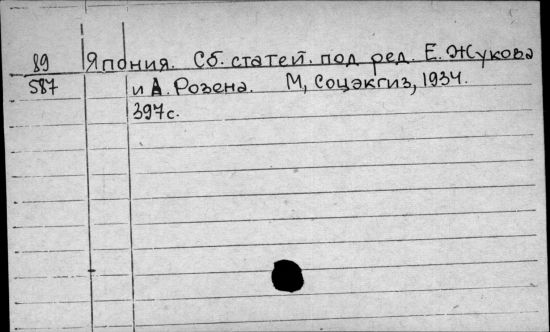 89 Япония. Сб. статей. под ред. Е. Жукова
587 и А. Розена. М, Соцэкгиз, 1934.
397с.